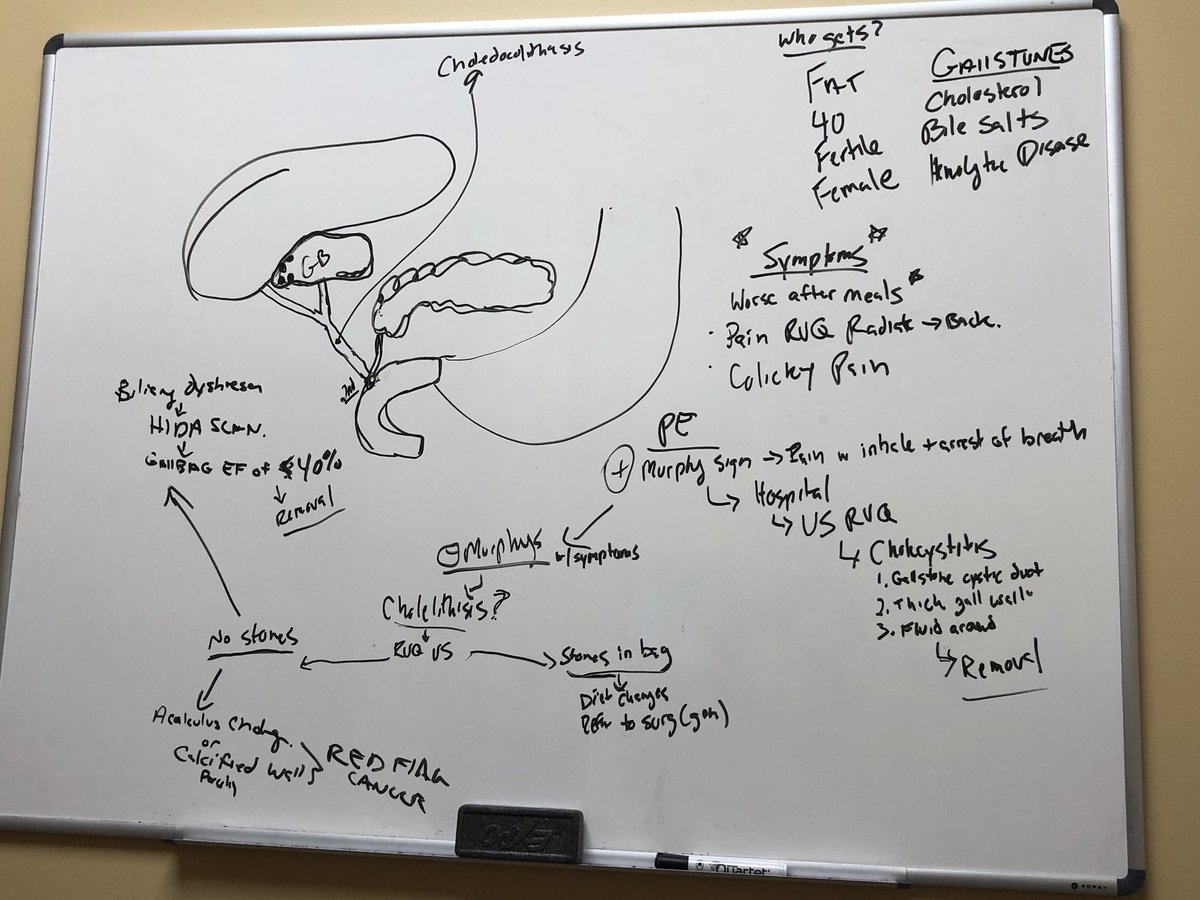 Choledocolithasis
Who gets?
FAT
40
Fertile
Female
GAllSTUNES
Cholesterol
Bile Salts
Hemolytic Disease
GB
2nd
Symptoms
Worse after meals
· Pain RUQ Radiate → Back.
· Colicky Pain
PE
+ Murphy sign → Pain w inhale + arrest of breath
↳ Hospital
↳ US RUQ
↳ Cholecystitis
1. Gallstone cystic duct
2. Thick gall wall
3. Fluid around
↳ Removal
⊖ Murphys w/symptoms
Cholelithisis?
RUQ US
Stones in bag
Diet changes
Refer to surg (gen)
No stones
Biliary
HIDA SCAN.
GAllBAG EF of 40%
Removal
Acalculus
or
Calcified wall
RED FlAG
CANCER
EXPO
Quartet
FORAY